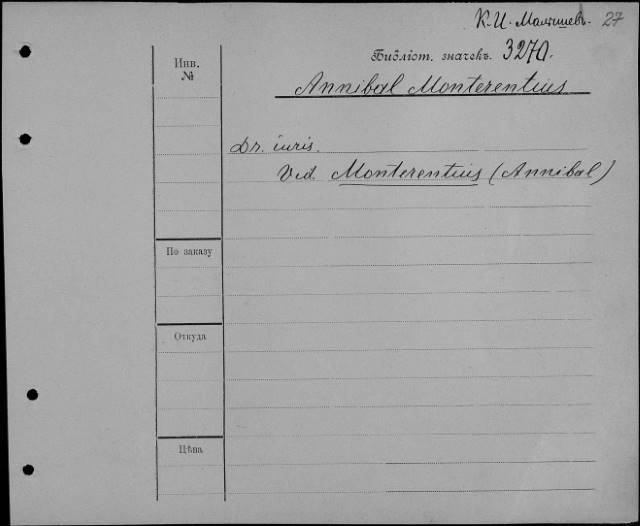 К. И. Малышевъ. 27
Библіот. значекъ. 3270.
Annibal Monterentius
Инв.
№
Dr. iuris.
Vid. Monterentius (Annibal)
По заказу
Откуда
Цѣна